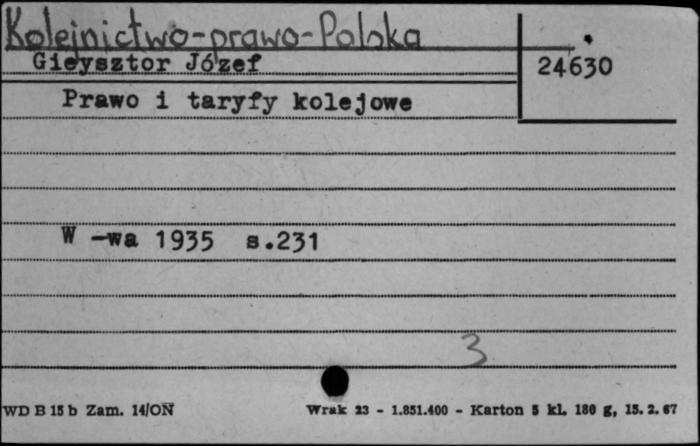 Kolejnictwo-prawo-Polska
Gieysztor Józef
24630
Prawo i taryfy kolejowe
W-wa 1935 s.231
3
WD B 15 b Zam. 14/ON Wrak 23 - 1.851.400 - Karton 5 kl. 180 g, 15. 2. 67